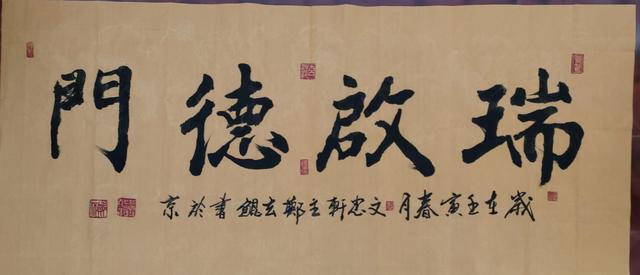 瑞啟德門
歲在壬寅春月文忠軒主鄭玄錕書於京